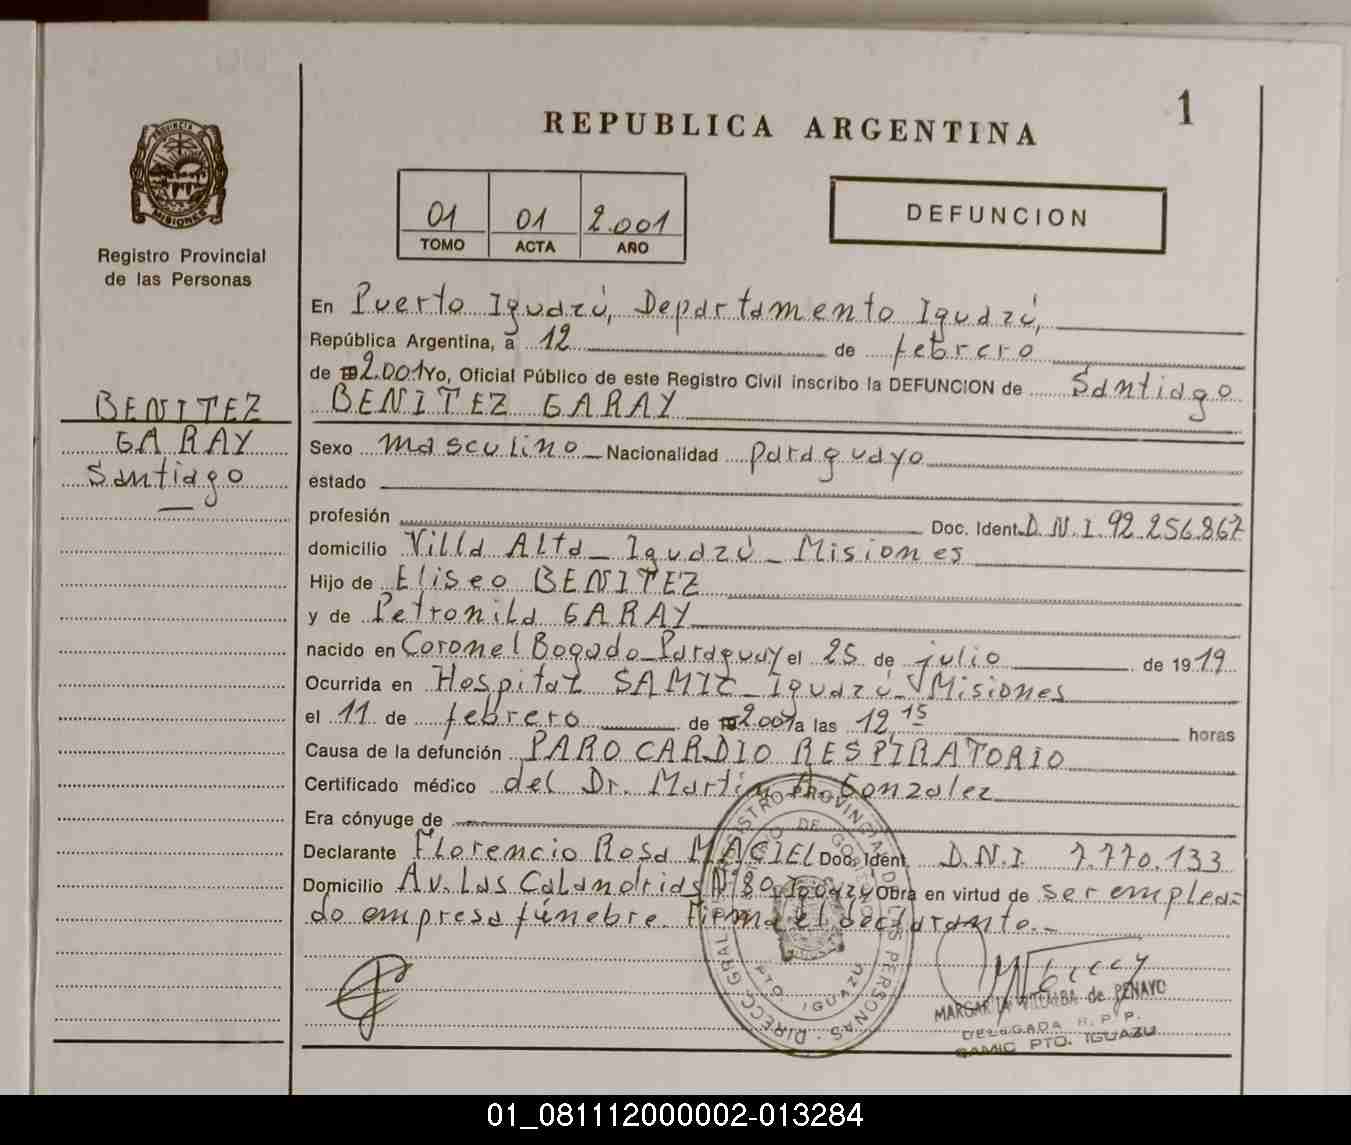 1
REPUBLICA ARGENTINA
PROVINCIA DE
MISIONES
Registro Provincial
de las Personas
01 01 2.001
TOMO ACTA AÑO
DEFUNCION
BENITEZ
GARAY
Santiago
En Puerto Iguazú, Departamento Iguazú,
República Argentina, a 12 de febrero
de 2.001 Yo, Oficial Público de este Registro Civil inscribo la DEFUNCION de Santiago
BENITEZ GARAY
Sexo masculino Nacionalidad paraguayo
estado
profesión Doc. Ident. D.N.I. 92.256.867
domicilio Villa Alta - Iguazú - Misiones
Hijo de Eliseo BENITEZ
y de Petronila GARAY
nacido en Coronel Bogado - Paraguay el 25 de julio de 1919
Ocurrida en Hospital SAMIC - Iguazú - Misiones
el 11 de febrero de 2001 a las 12,15 horas
Causa de la defunción PARO CARDIO RESPIRATORIO
Certificado médico del Dr. Martín A. Gonzalez
Era cónyuge de
Declarante Florencio Rosa MACIEL Doc. Ident. D.N.I 7.770.133
Domicilio Av. Las Calandrias Nº 80, Iguazú Obra en virtud de ser emplea-
do empresa fúnebre. Firma el declarante.-
DIRECC. GRAL. REGISTRO PROVINCIAL DE LAS PERSONAS
DE GOBIERNO
PTO IGUAZU
MARGARITA VILLALBA de PENAYO
DELEGADA R. P. P.
SAMIC PTO. IGUAZU
01_081112000002-013284